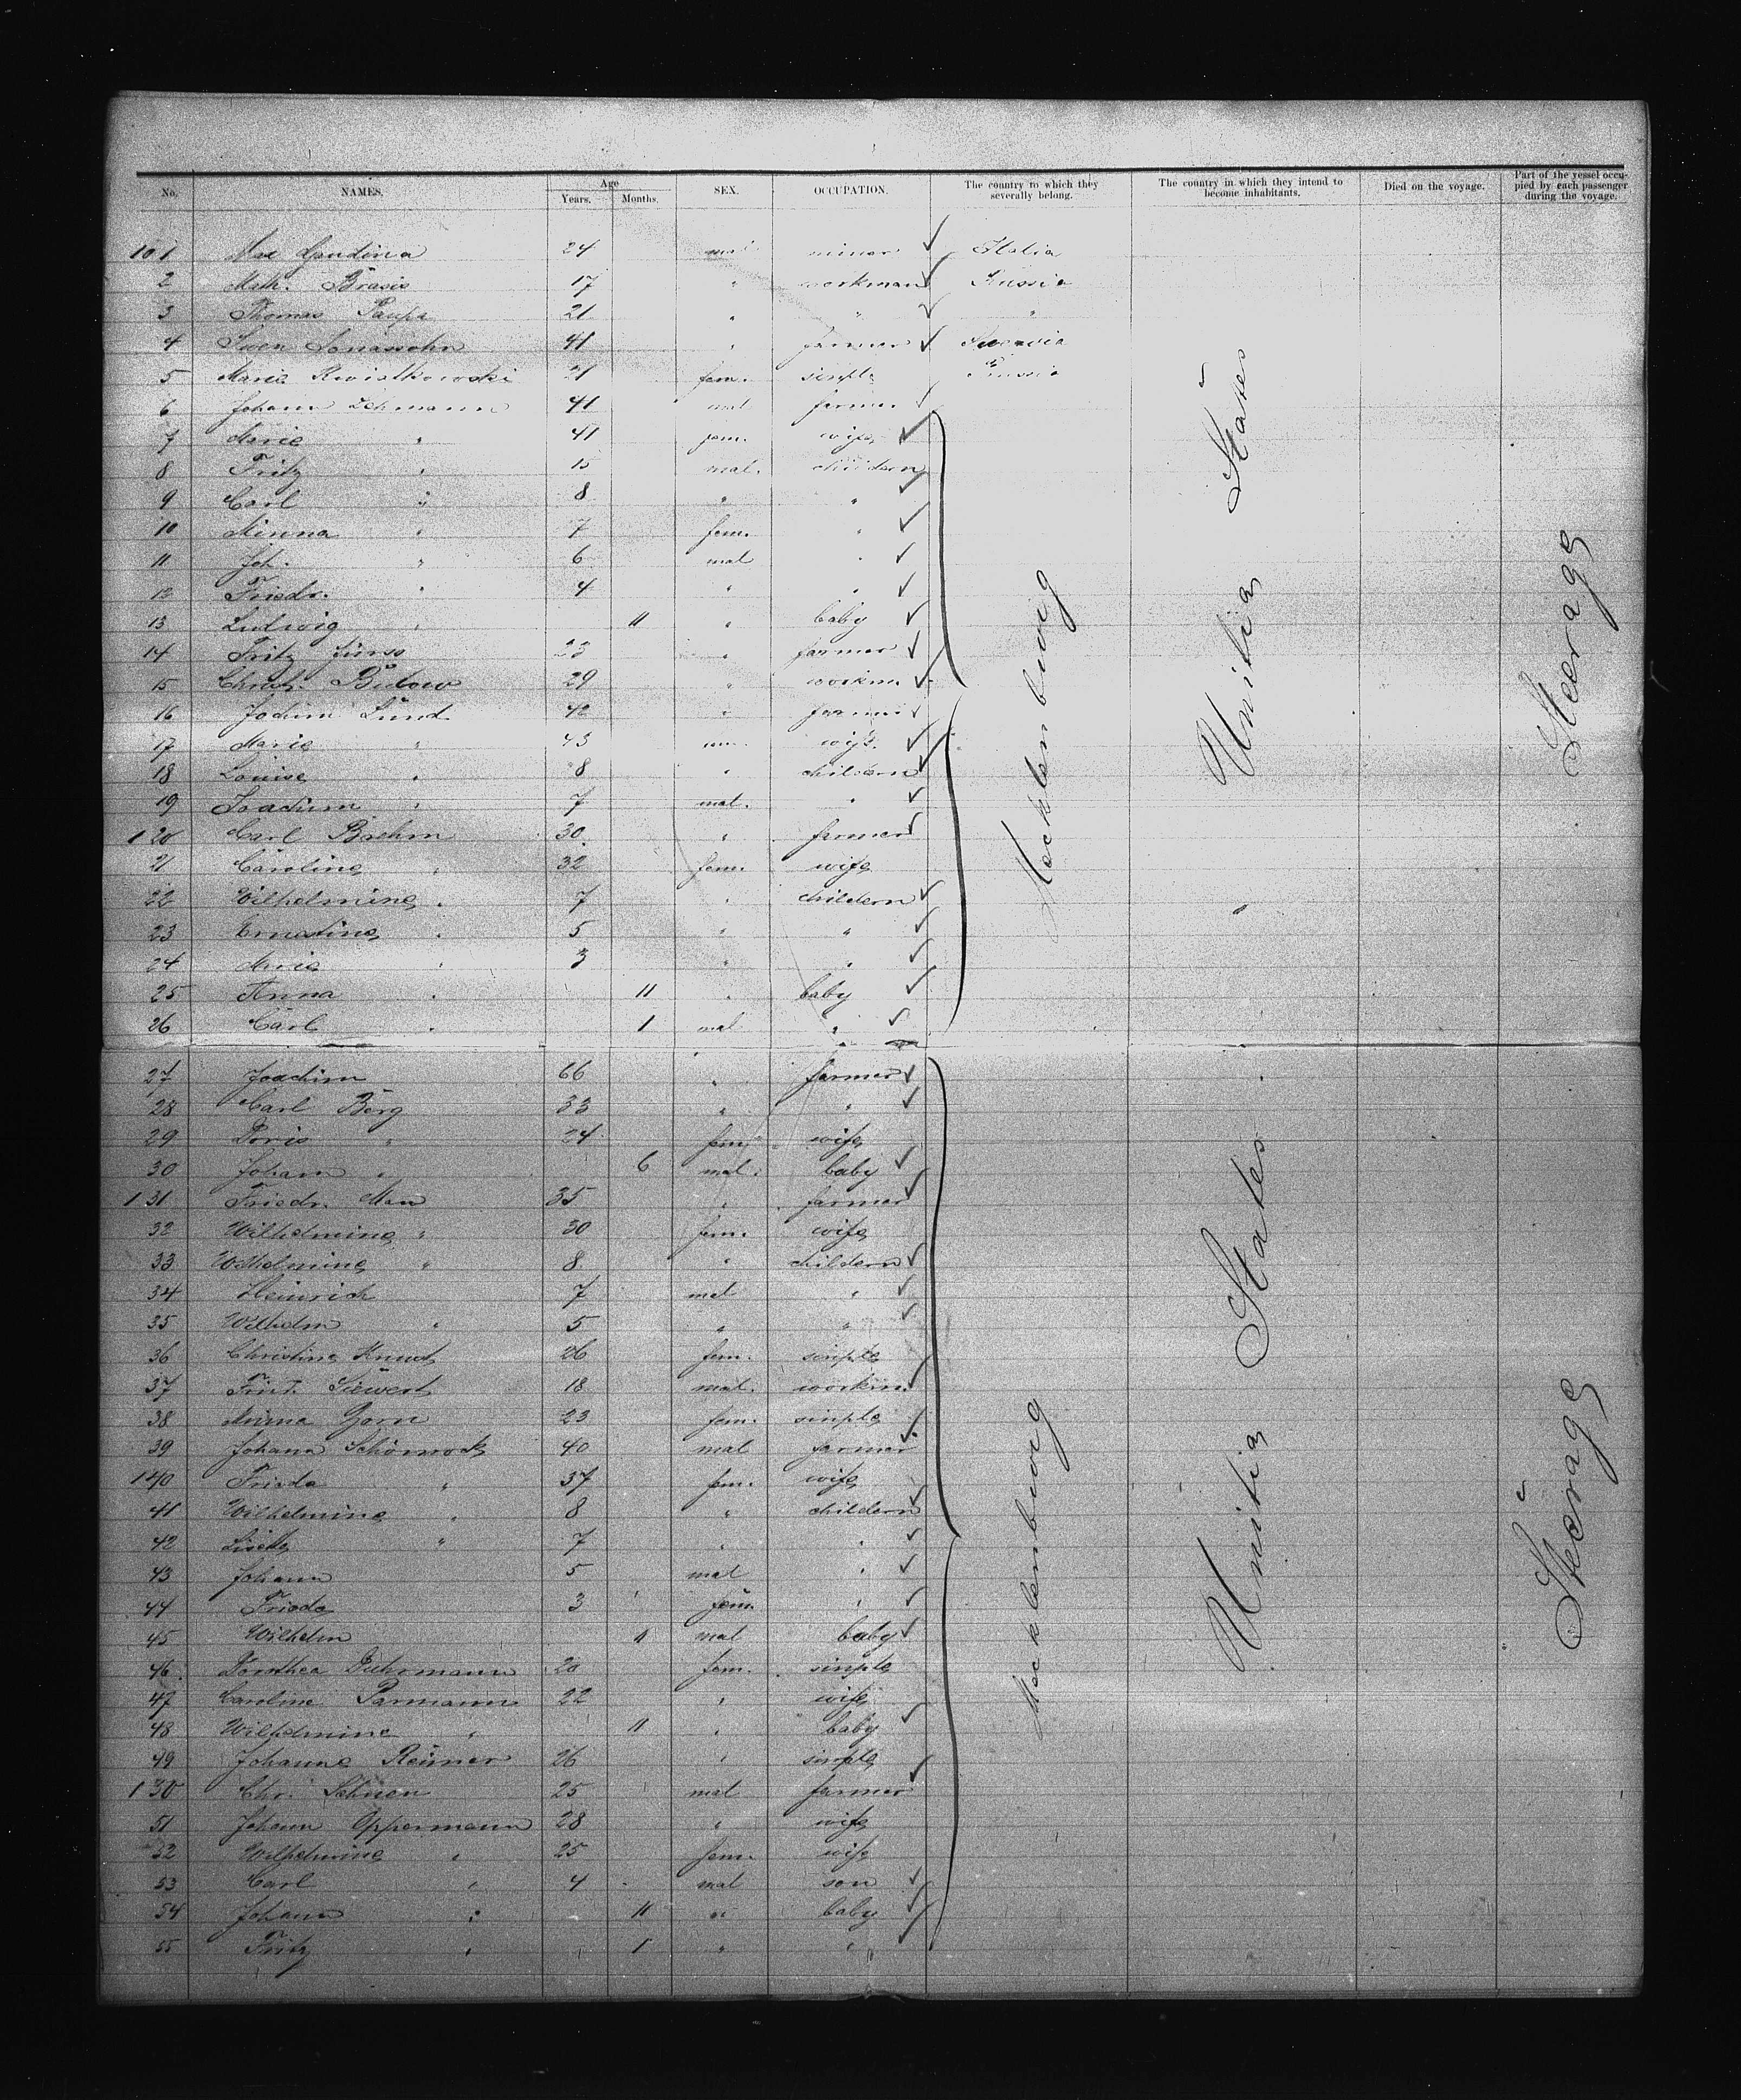 No. NAMES. Age Years. Months. SEX. OCCUPATION. The country to which they severally belong. The country in which they intend to become inhabitants. Died on the voyage. Part of the vessel occupied by each passenger during the voyage.
101 24 mal miner Italia
2 Math. Brasis 17 " workman Russia
3 Thomas 21 " " "
4 Swen Jonassohn 41 " farmer
5 Marie Kwiatkowski 21 fem. simple
6 Johann Lehmann 41 mal farmer
7 Marie " 41 fem. wife
8 Fritz " 15 mal. childern
9 Carl " 8 " "
10 Minna " 7 fem. "
11 Joh. " 6 mal "
12 Friedr. " 4 " "
13 Ludwig " 11 " baby
14 Fritz 23 " farmer
15 Christ. Bülow 29 " workm.
16 Jochim Lünd 42 " farmer
17 Marie " 43 fem. wife
18 Louise " 8 " childern
19 Joachim " 7 mal. "
120 Carl Brehm 30 " farmer
21 Caroline " 32 fem. wife
22 Wilhelmine " 7 " childern
23 Ernestine " 5 " "
24 Marie " 3 " "
25 Anna " 11 " baby
26 Carl " 1 mal "
27 Joachim 66 " farmer
28 Carl Berg 33 " "
29 Doris " 24 fem. wife
30 Johann " 6 mal. baby
131 Friedr. Man 35 " farmer
32 Wilhelmine " 30 fem. wife
33 Wilhelmine " 8 " childern
34 Heinrich 7 mal "
35 Wilhelm " 5 " "
36 Christine Knust 26 fem. simple
37 Siewert 18 mal. workm.
38 Minna Gorn 23 fem. simple
39 Johann 40 mal farmer
140 Frieda " 37 fem. wife
41 Wilhelmine " 8 " childern
42 Lisette " 7 " "
43 Johann 5 mal "
44 Frieda 3 fem. "
45 Wilhelm 11 mal baby
46 Dorothea 20 fem. simple
47 Caroline Parmann 22 " wife
48 Wilhelmine " 11 " baby
49 Johanne Reimer 26 " simple
130 Chr. 25 mal farmer
51 Johann Oppermann 28 " wife
52 Wilhelmine " 25 fem. wife
53 Carl " 4 mal son
54 Johann " 11 " baby
55 Fritz " 1 " "
Mecklenburg
United States
Steerage
Mecklenburg
United States
Steerage